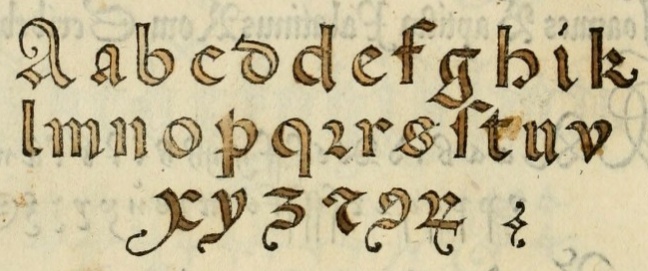 Aabcꝺdefghik
lmnopqꝛrsſtuv
xyz⁊ꝯꝝ